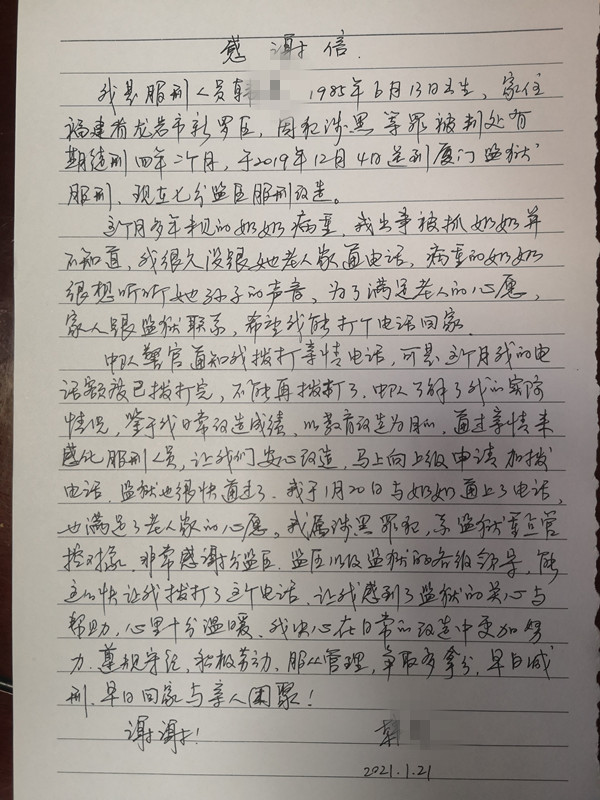 感谢信
我是服刑人员 1985年6月13日出生，家住
福建省龙岩市新罗区，因犯涉黑等罪被判处有
期徒刑四年二个月，于2019年12月4日送到厦门监狱
服刑，现在七分监区服刑改造。
这个月多年未见的奶奶病重，我出事被抓奶奶并
不知道，我很久没跟她老人家通电话，病重的奶奶
很想听听她孙子的声音，为了满足老人的心愿，
家人跟监狱联系，希望我能打个电话回家.
中队警官通知我拨打亲情电话，可是这个月我的电
话额度已拨打完，不能再拨打了.中队了解了我的实际
情况，鉴于我日常改造成绩，以教育改造为目的，通过亲情来
感化服刑人员，让我们安心改造，马上向上级申请加拨
电话，监狱也很快通过了.我于1月20日与奶奶通上了电话，
也满足了老人家的心愿。我属涉黑罪犯，系监狱重点管
控对象，非常感谢分监区、监区以及监狱的各级领导，能
这么快让我拨打了这个电话，让我感到了监狱的关心与
帮助，心里十分温暖、我决心在日常的改造中更加努
力.遵规守纪，积极劳动，服从管理，争取多拿分，早日减
刑.早日回家与亲人团聚！
谢谢！
2021.1.21